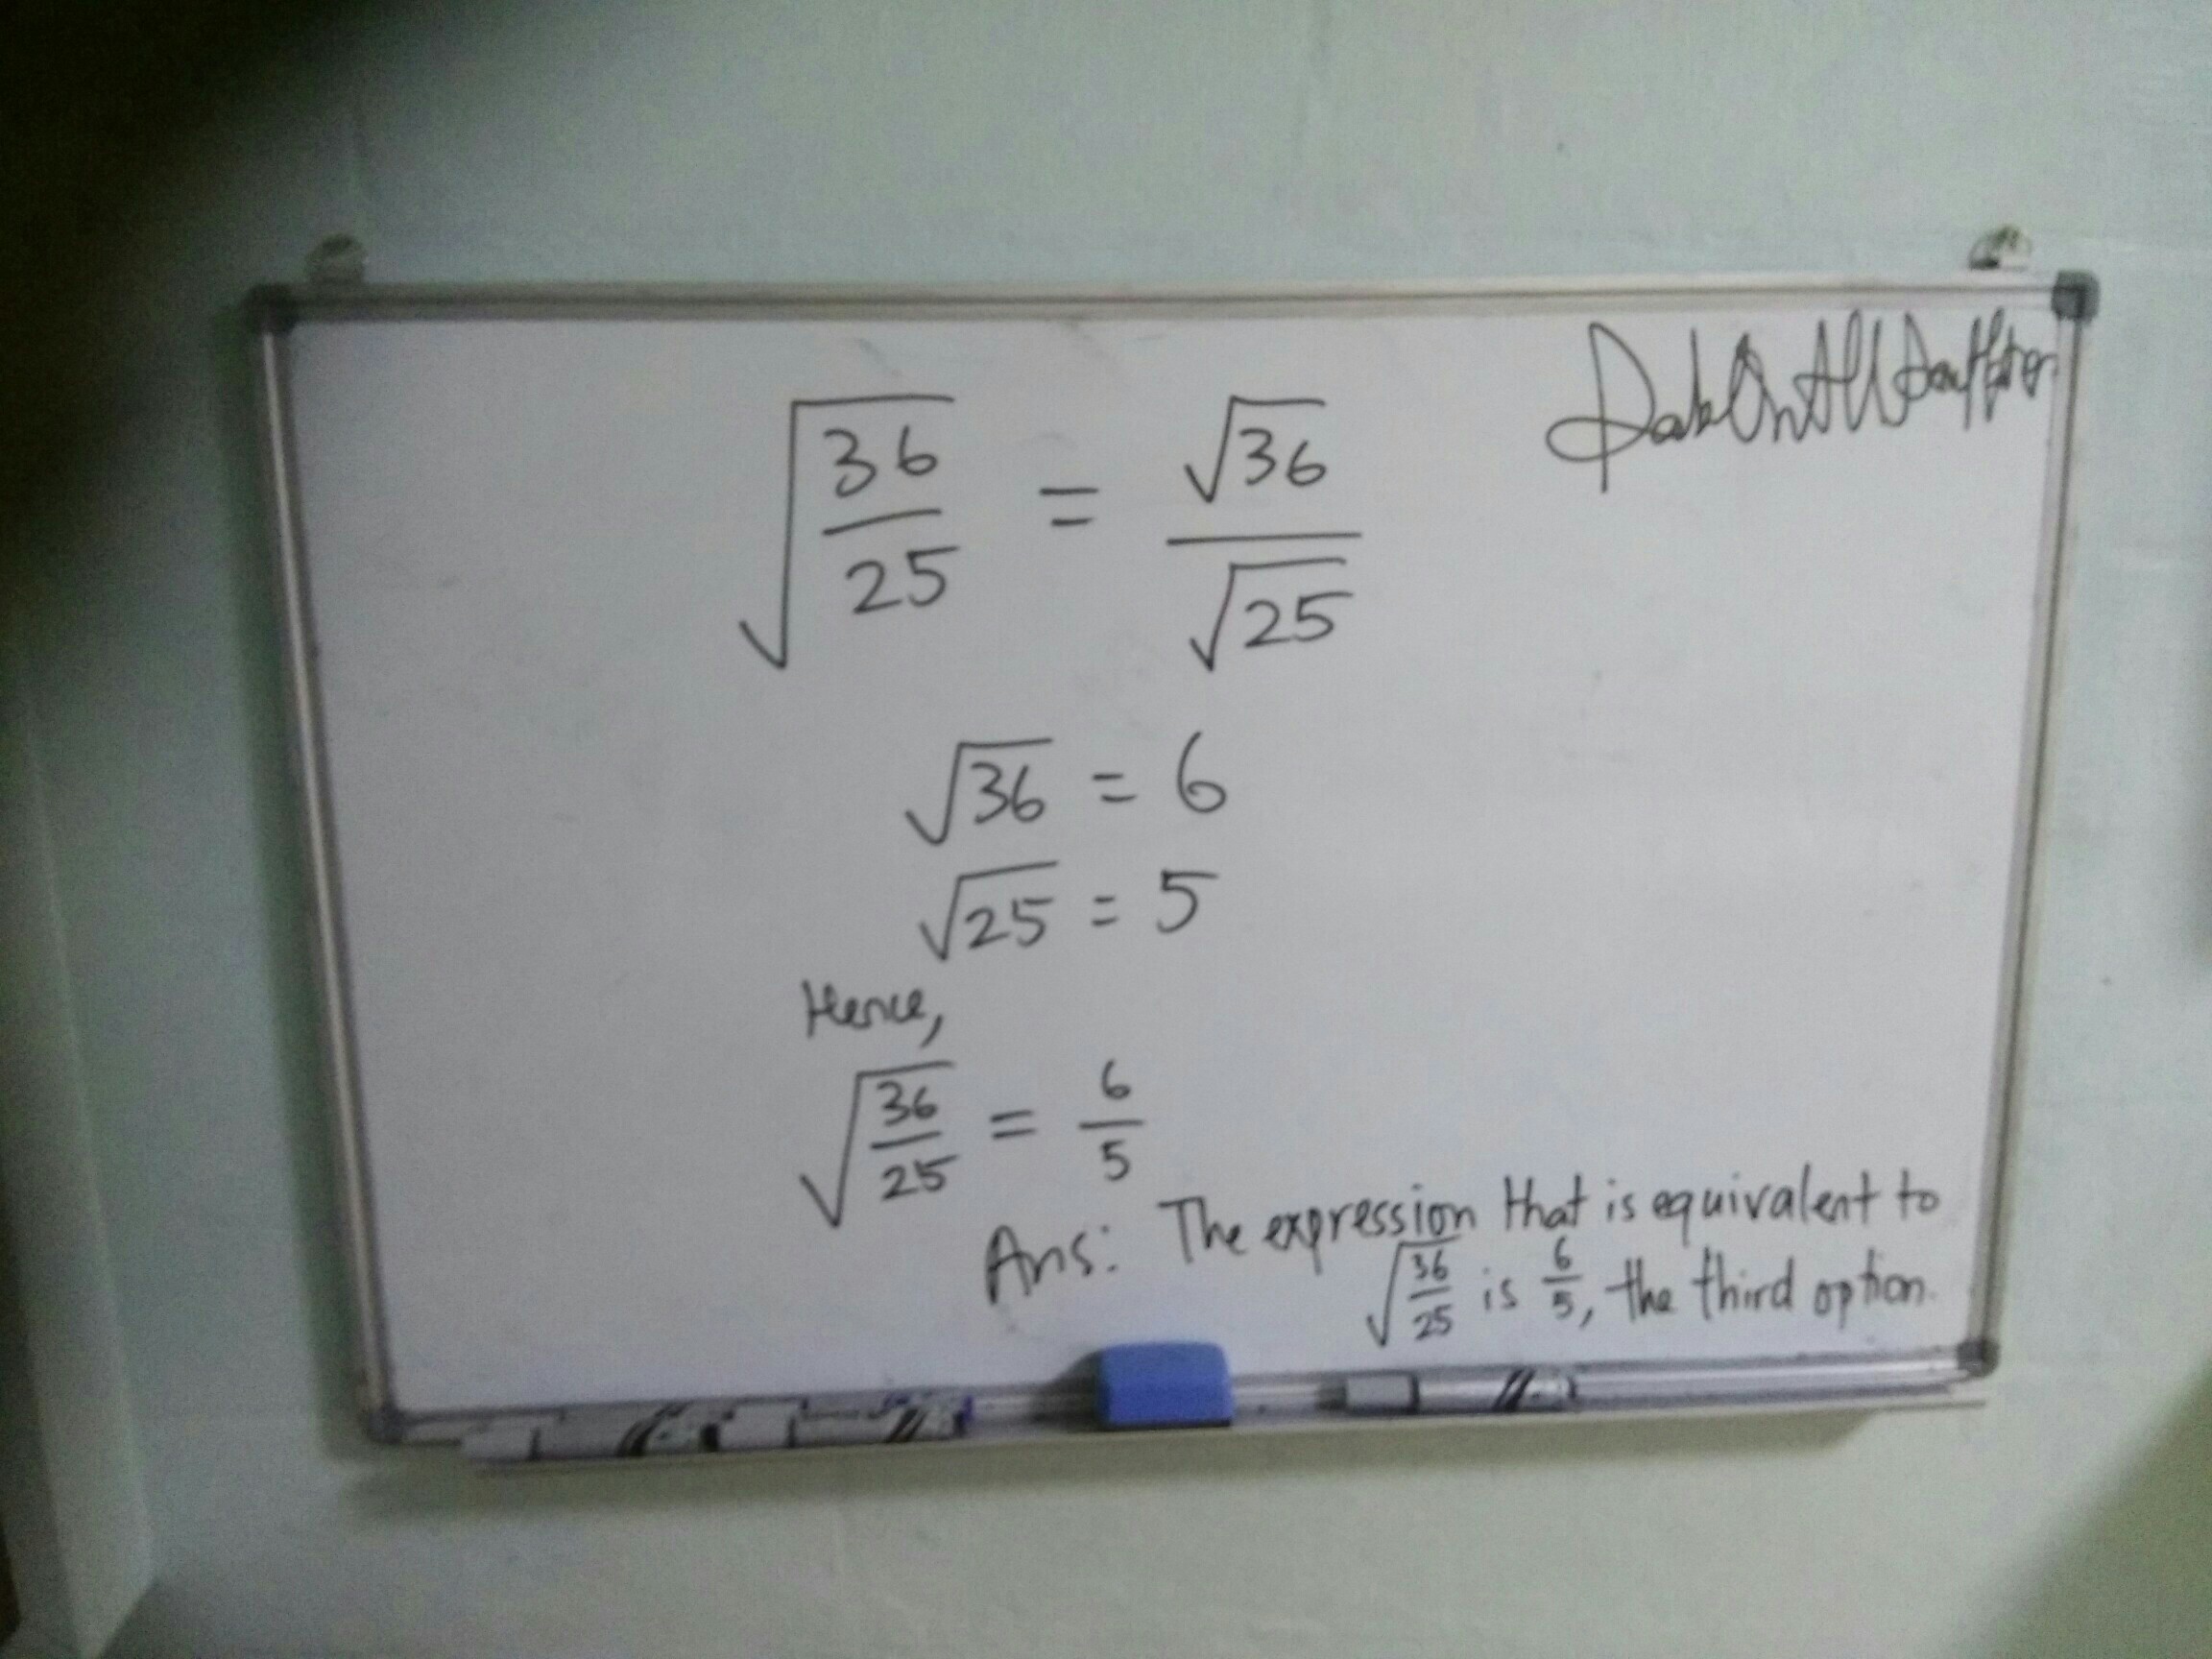 √(36/25) = √36/√25
√36 = 6
√25 = 5
Hence,
√(36/25) = 6/5
Ans: The expression that is equivalent to
√(36/25) is 6/5, the third option.